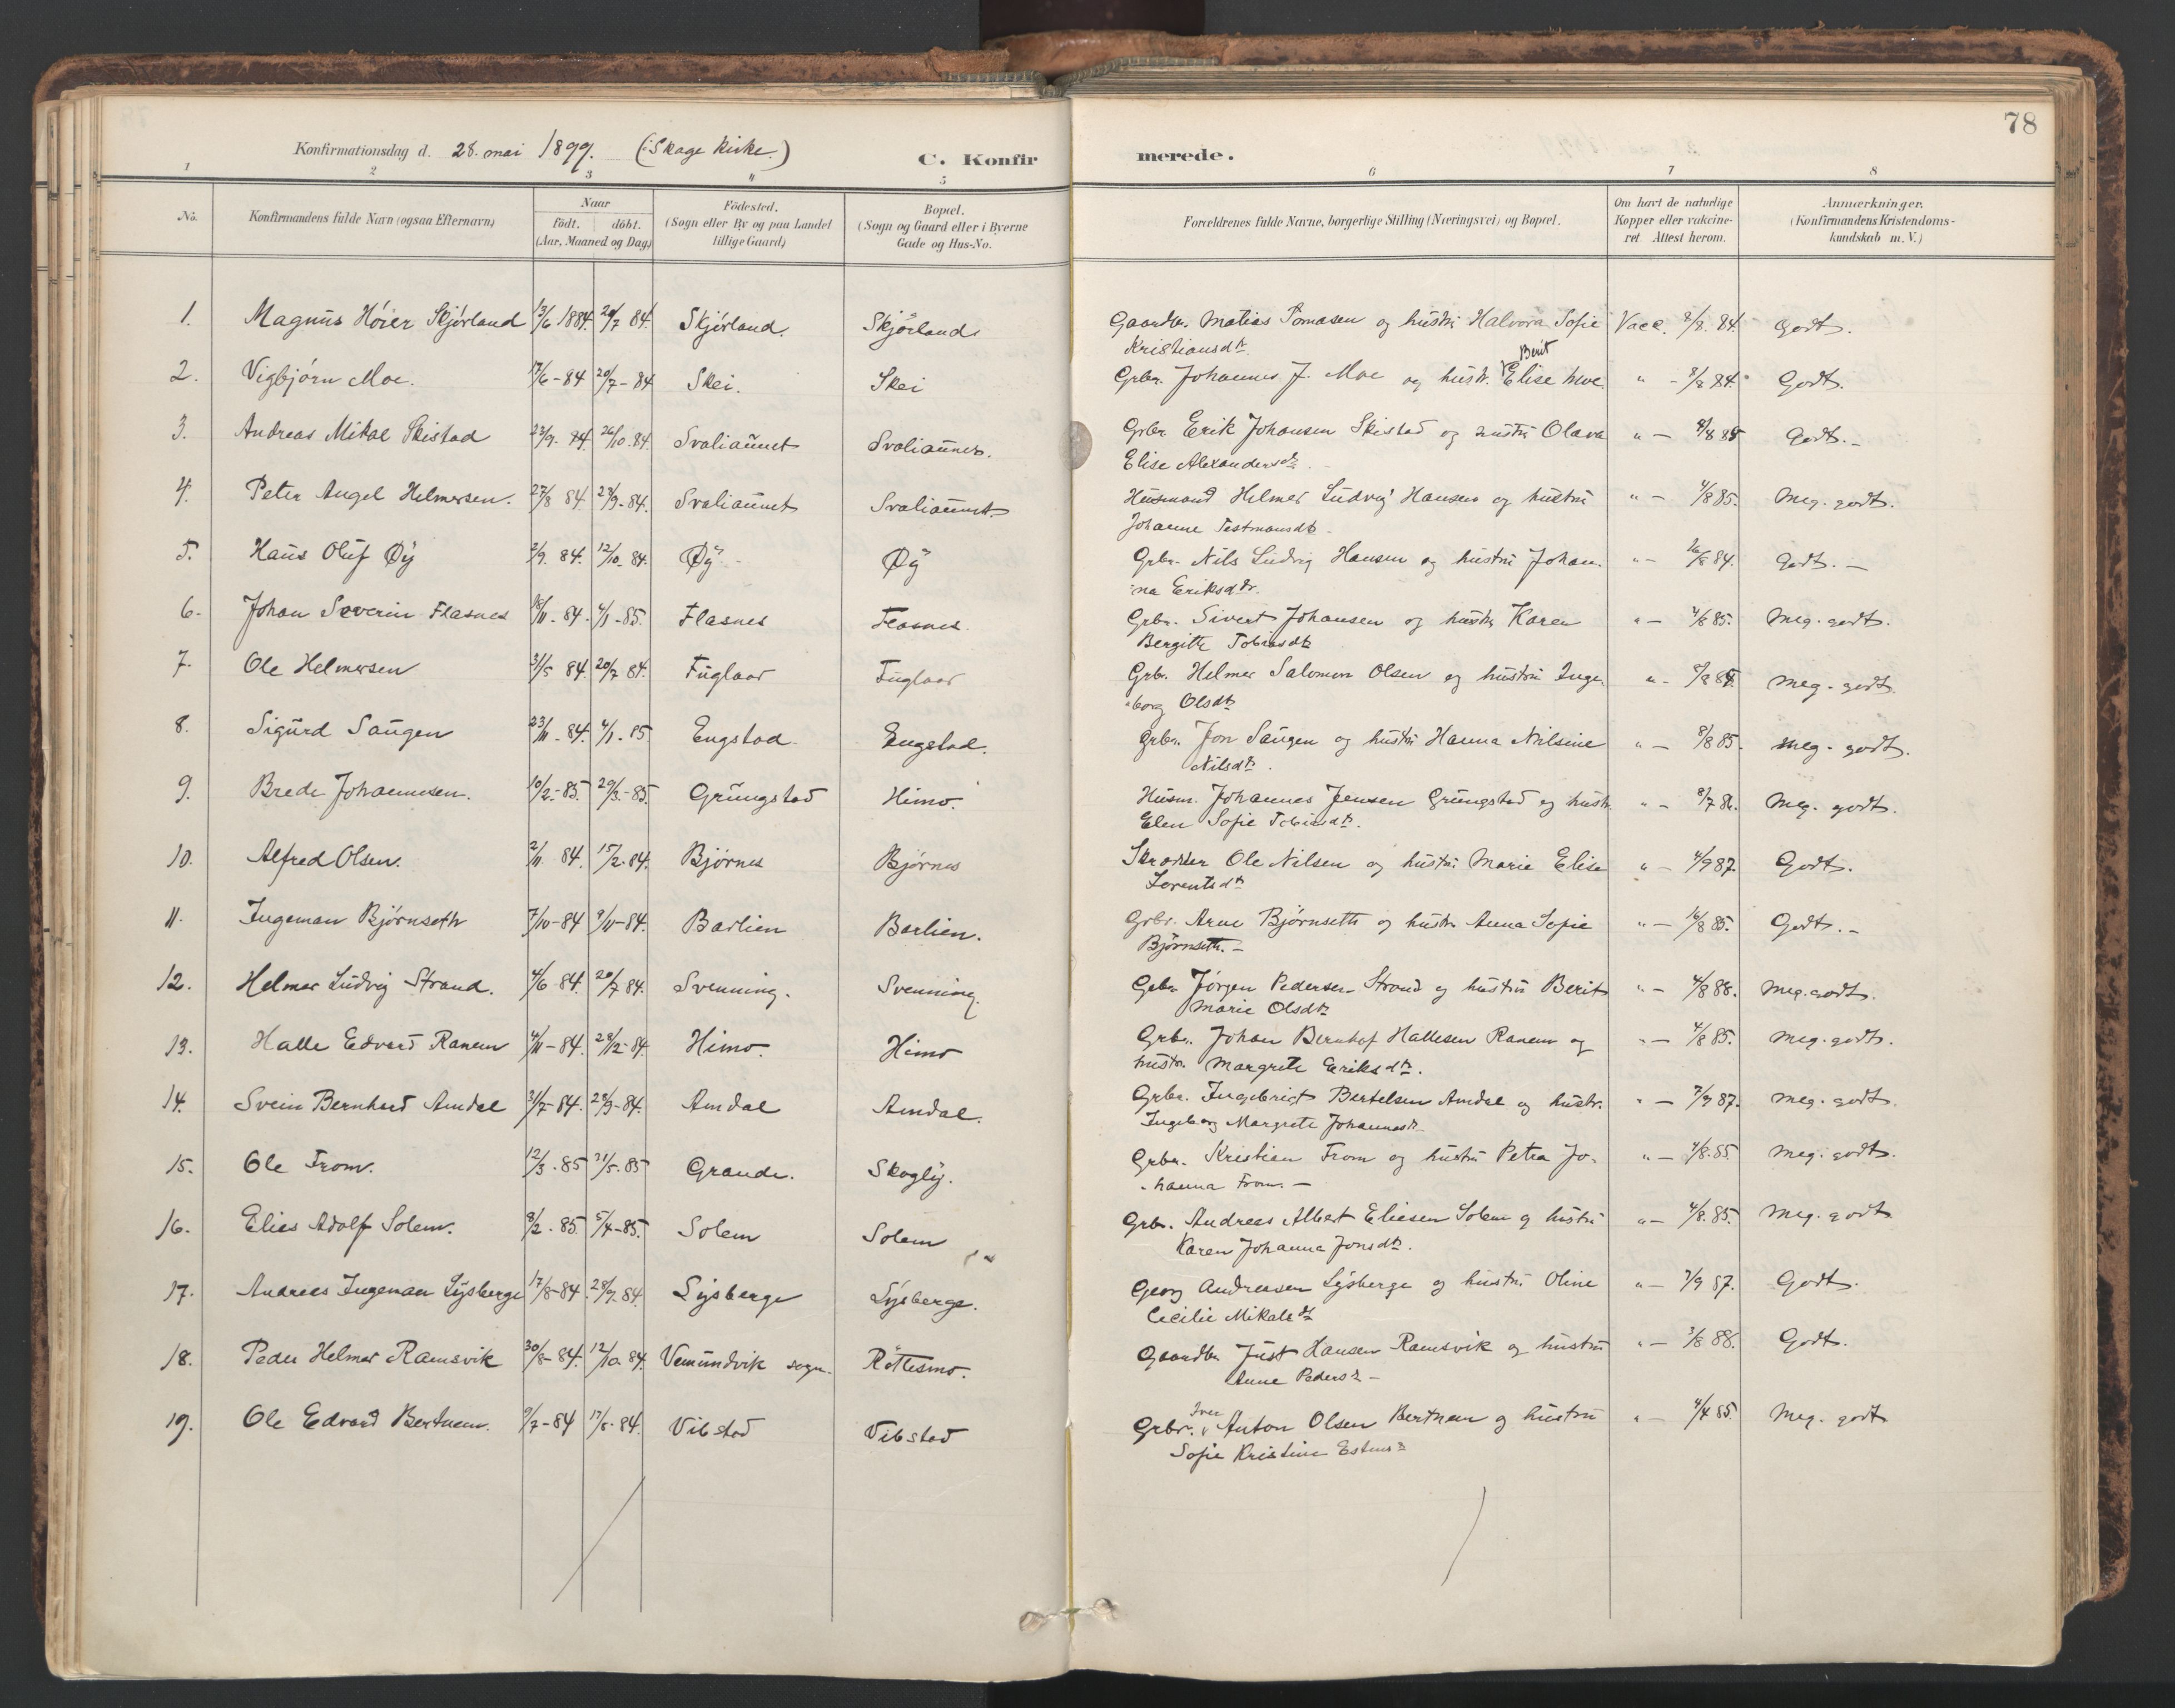 78
Konfirmationsdag d. 28. mai 1899. (i Skage kirke.) C. Konfirmerede.
1 2 3 4 5 6 7 8
No. Konfirmandens fulde Navn (ogsaa Efternavn) Naar født. døbt. (Aar, Maaned og Dag) Fødested. (Sogn eller By og paa Landet tillige Gaard) Bopæl. (Sogn og Gaard eller i Byerne Gade og Hus-No. Forældrenes fulde Navne, borgerlige Stilling (Næringsvei) og Bopæl. Om havt de naturlige Kopper eller vakcineret. Attest herom. Anmærkninger. (Konfirmandens Kristendomskundskab m. V.)
1. Magnus Höier Skjörland 13/6 1884. 20/7 84. Skjörland. Skjörland. Gaardbr. Matias Tomasen og hustru Halvora Sofie Vacc. 8/8. 84. Godt.
Kristiansdtr.
2. Vigbjörn Moe. 17/6-84 20/7-84 Skei. Skei Grbr. Johannes J. Moe og hustr. Berit Elise Moe. " - 8/8 84. Godt.
3. Andreas Mikal Skistad 23/9. 84. 26/10. 84. Svaliaunet Svaliaunet. Grbr. Erik Johansen Skistad og hustru Olava " - 4/8 85 Godt.-
Elise Alexandersdtr.
4. Peter Angel Helmersen. 27/8 84. 28/9-84. Svaliaunet Svaliaunet. Husmand Helmer Ludvig Hansen og hustru " - 4/8 85. Meg. godt.
Johanne Testmansdtr.
5. Hans Oluf Øÿ 2/9. 84. 12/10. 84. Øÿ Øÿ Grbr. Nils Ludvig Hansen og hustru Johan- " - 84. Godt. -
na Eriksdtr.
6. Johan Severin Flasnes 18/11. 84. 4/1-85. Flasnes Flasnes. Grbr. Sivert Johansen og hustru Karen " - 4/8 85. Meg. godt.
Bergitte Tobiasdtr.
7. Ole Helmersen 31/5 84. 20/7 84. Fuglaar Fuglaar Grbr. Helmer Salomon Olsen og hustru Inge- " - Meg. godt.
borg Olsdtr.
8. Sigurd Saugen 23/11-84. 4/1-85. Engstad. Engstad. Grbr. Jon Saugen og hustru Hanna Nilsine " - 8/8 85. Meg. godt.
Nilsdtr.
9. Brede Johannesen. 10/2-85. 29/3-85. Grüngstad Himo. Husm. Johannes Jensen Grüngstad og hustr. " - 8/7 86. Meg. godt.
Elen Sofie Tobiasdtr.
10. Alfred Olsen. 2/11 84. 15/2-84. Bjørnes Bjørnes Skrædder Ole Nilsen og hustru Marie Elise " - 4/9 87. Godt.
Lorentsdtr.
11. Ingeman Bjørnseth 7/10-84 9/11-84. Barlien Barlien. Grbr. Arne Bjørnseth og hustr. Anna Sofie " - 16/8 85. Godt.-
Bjørnseth.-
12. Helmer Ludvig Strand. 4/6 84. 20/7 84. Svenning. Svenning. Grbr. Jörgen Pedersen Strand og hustru Berit " - 4/8 88. Meg. godt.
Marie Olsdtr.
13. Halle Edvard Ranem 4/11-84. 28/12-84. Himo. Himo Grbr. Johan Bernhof Hallesen Ranem og " - 4/8 85. Meg. godt.
hustr. Margrete Eriksdtr.
14. Svein Bernhard Amdal 31/7-84. 28/9-84. Amdal Amdal. Grbr. Ingebrigt Bertelsen Amdal og hustr. " - 7/9 87. Meg. godt.
Ingeborg Margrete Johannesdtr.
15. Ole From. 12/3-85 31/5-85 Grande. Skogly. Grbr. Kristian From og hustru Petra Jo- " - 4/8-85. Meg. godt.
hanna From. -
16. Elias Adolf Solem. 8/2-85. 5/4-85. Solem Solem Grbr. Andreas Albert Eliesen Solem og hustru " - 4/8. 85. Meg. godt
Karen Johanna Jonsdtr.
17. Andreas Ingeman Lysberge 17/8-84. 28/9-84. Lysberge Lysberge. Georg Andreasen Lysberge og hustru Oline " - 7/9 87. Godt.
Cecilie Mikalsdtr
18. Peder Helmer Ramsvik 30/8-84. 12/10. 84. Vemundvik sogn. Röttesmo. Gaardbr. Just Hansen Ramsvik og hustru " - 3/8 88. Godt.
Anne Pedersdtr. -
19. Ole Edvard Bertnem. 9/7-84 17/8-84. Vibstad Vibstad Grbr. Iver Anton Olsen Bertnem og hustru " - 4/4 85. Meg. godt
Sofie Kristine